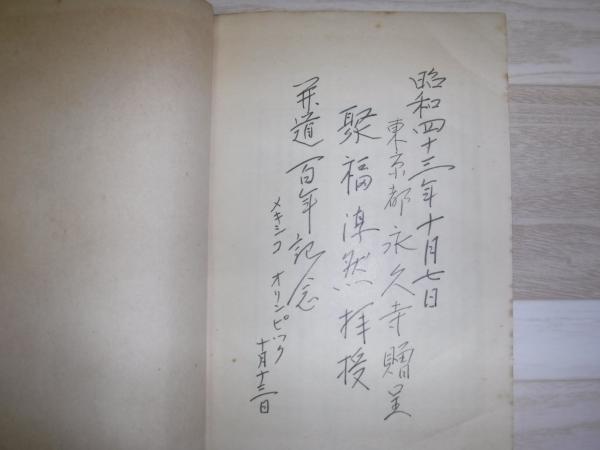 昭和四十三年十月七日
東京都永久寺贈呈
聚福淳然拝授
柔道百年記念
メキシコ オリンピック
十月十三日